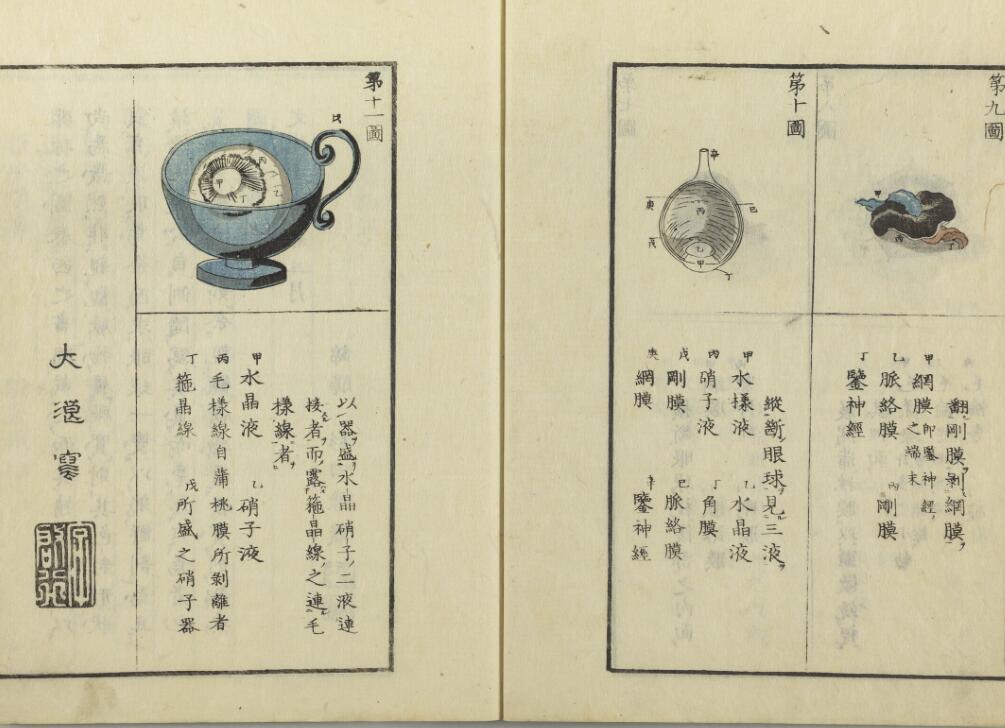 第九圖
甲
丙
丁
翻剛膜剝網膜
甲 網膜即鑒神經之端末
乙 脈絡膜 丙 剛膜
丁 鑒神經
第十圖
辛
庚
己
丙
戊
乙
甲
丁
縱斷眼球見三液
甲 水樣液 乙 水晶液
丙 硝子液 丁 角膜
戊 剛膜 己 脈絡膜
庚 網膜 辛 鑒神經
第十一圖
戊
丙
甲
乙
丁
以器盛水晶硝子二液連
接者而露箍晶線之連毛
樣線者
甲 水晶液 乙 硝子液
丙 毛樣線自蒲桃膜所剝離者
丁 箍晶線 戊 所盛之硝子器
大
寫